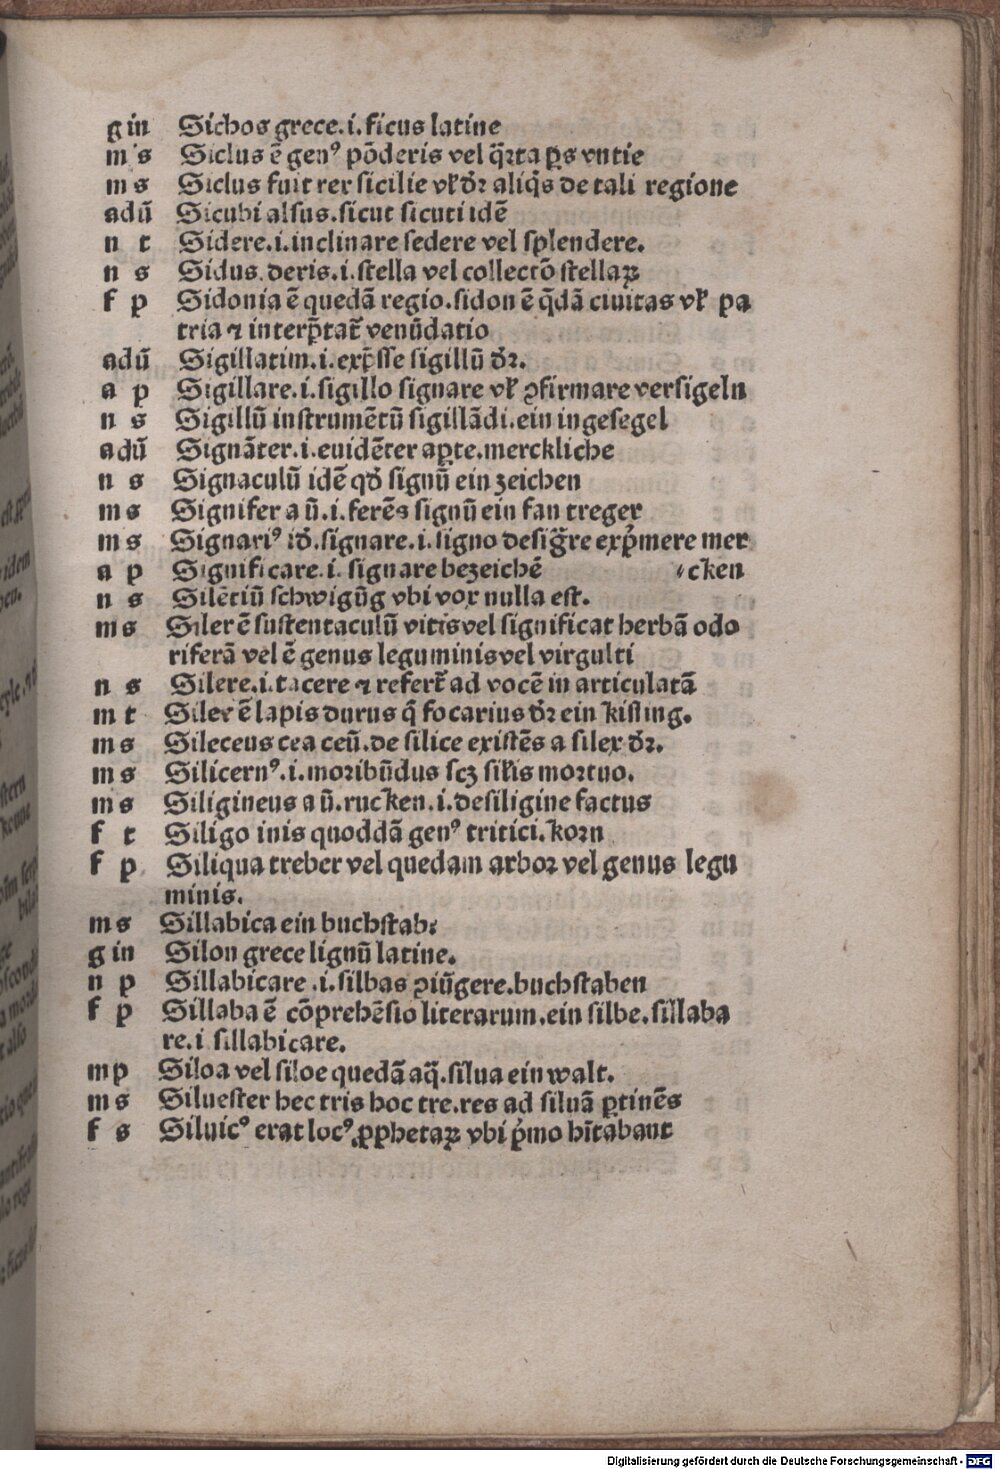 g in Sichos grece.i.ficus latine
m s Siclus ē genꝰ põderis vel q̃rta ꝑs vntie
m s Siclus fuit rex sicilie vł dr̃ aliq̃s de tali regione
adũ Sicubi alsus.sicut sicuti idẽ
n t Sidere.i.inclinare sedere vel splendere.
n s Sidus deris.i.stella vel collectõ stellaꝝ
f p Sidonia ē quedã regio.sidon ē q̃dã ciuitas vł pa
tria ⁊ interp̃tat᷑ venũdatio
adũ Sigillatim.i.exp̃sse sigillũ dr̃.
a p Sigillare.i.sigillo signare vł ꝯfirmare versigeln
n s Sigillũ instrumẽtũ sigillãdi.ein ingesegel
adũ Signãter.i.euidẽter aꝑte.merckliche
n s Signaculũ idẽ qđ signũ ein zeichen
m s Signifer a ũ.i.ferẽs signũ ein fan treger
m s Signariꝰ iđ.signare.i.signo desig̃re exp̃mere mer
a p Significare.i.signare bezeichẽ cken
n s Silẽtiũ schwigũg vbi vox nulla est.
m s Siler ē sustentaculũ vitis vel significat herbã odo
riferã vel ē genus leguminis vel virgulti
n s Silere.i.tacere ⁊ refert᷑ ad vocẽ in articulatã
m t Silex ē lapis durus q̃ focarius dr̃ ein kisling.
m s Sileceus cea ceũ.de silice existẽs a silex dr̃.
m s Silicernꝰ.i.moribũdus scꝫ siłis mortuo.
m s Siligineus a ũ.rucken.i.de siligine factus
f t Siligo inis quoddã genꝰ tritici.korn
f p Siliqua treber vel quedam arbor vel genus legu
minis.
m s Sillabica ein buchstab:
g in Silon grece lignũ latine.
n p Sillabicare .i.silbas ꝯiũgere.buchstaben
f p Sillaba ē cõprehẽsio literarum.ein silbe.sillaba
re.i sillabicare.
m p Siloa vel siloe quedã aq̃.silua ein walt.
m s Siluester hec tris hoc tre.res ad siluã ꝑtinẽs
f s Siluicꝰ erat locꝰ ꝓphetaꝝ vbi p̃mo hĩtabant
Digitalisierung gefördert durch die Deutsche Forschungsgemeinschaft - DFG